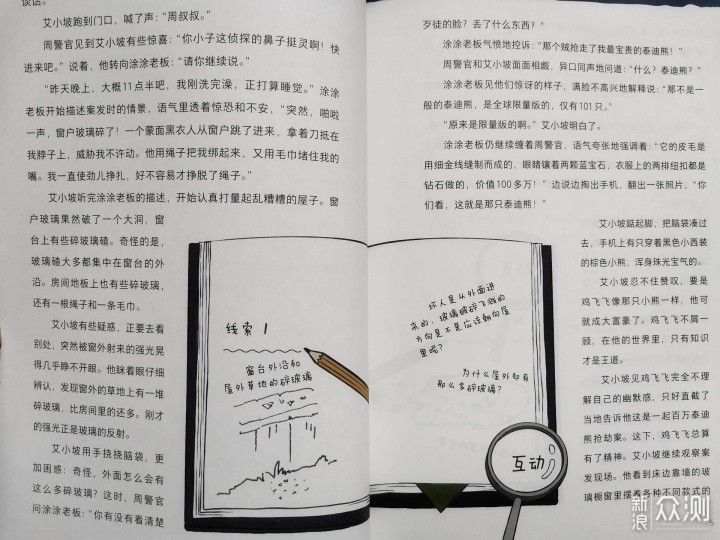 谈话。
艾小坡跑到门口，喊了声：“周叔叔。”
周警官见到艾小坡有些惊喜：“你小子这侦探的鼻子挺灵啊！快
进来吧。”说着，他转向涂涂老板：“请你继续说。”
“昨天晚上，大概11点半吧，我刚洗完澡，正打算睡觉。”涂涂
老板开始描述案发时的情景，语气里透着惊恐和不安，“突然，啪啦
一声，窗户玻璃碎了！一个蒙面黑衣人从窗户跳了进来，拿着刀抵在
我脖子上，威胁我不许动。他用绳子把我绑起来，又用毛巾堵住我的
嘴。我一直使劲儿挣扎，好不容易才挣脱了绳子。”
艾小坡听完涂涂老板的描述，开始认真打量起乱糟糟的屋子。窗
户玻璃果然破了一个大洞，窗
台上有些碎玻璃碴。奇怪的是，
玻璃碴大多都集中在窗台的外
沿。房间地板上也有些碎玻璃，
还有一根绳子和一条毛巾。
艾小坡有些疑惑，正要去看
别处，突然被窗外射来的强光晃
得几乎睁不开眼。他眯着眼仔细
辨认，发现窗外的草地上有一堆
碎玻璃，比房间里的还多。刚才
的强光正是玻璃的反射。
艾小坡用手挠挠脑袋，更
加困惑：奇怪，外面怎么会有
这么多碎玻璃？这时，周警官
问涂涂老板：“你有没有看清楚
线索1
窗台外沿和
屋外草地的碎玻璃
歹徒的脸？丢了什么东西？”
涂涂老板气愤地控诉：“那个贼抢走了我最宝贵的泰迪熊！”
周警官和艾小坡面面相觑，异口同声地问道：“什么？泰迪熊？”
涂涂老板见他们惊讶的样子，满脸不高兴地解释说：“那不是一
般的泰迪熊，是全球限量版的，仅有101只。”
“原来是限量版的啊。”艾小坡明白了。
涂涂老板仍继续缠着周警官，语气夸张地强调着：“它的皮毛是
用细金线缝制而成的，眼睛镶着两颗蓝宝石，衣服上的两排纽扣都是
钻石做的，价值100多万！”边说边掏出手机，翻出一张照片，“你
们看，这就是那只泰迪熊！”
艾小坡踮起脚，把脑袋凑过
去，手机上有只穿着黑色小西装
的棕色小熊，浑身珠光宝气的。
艾小坡忍不住赞叹，要是
鸡飞飞像那只小熊一样，他可
就成大富豪了。鸡飞飞不屑一
顾，在他的世界里，只有知识
才是王道。
艾小坡见鸡飞飞完全不理
解自己的幽默感，只好直截了
当地告诉他这是一起百万泰迪
熊抢劫案。这下，鸡飞飞总算
有了精神。艾小坡继续观察案
发现场。他看到床边靠墙的玻
璃橱窗里摆着各种不同款式的
坏人是从外面进
来的，玻璃破碎飞溅的
方向是不是应该朝向屋
里呢？
为什么屋外却有
那么多碎玻璃？
互动
新浪众测